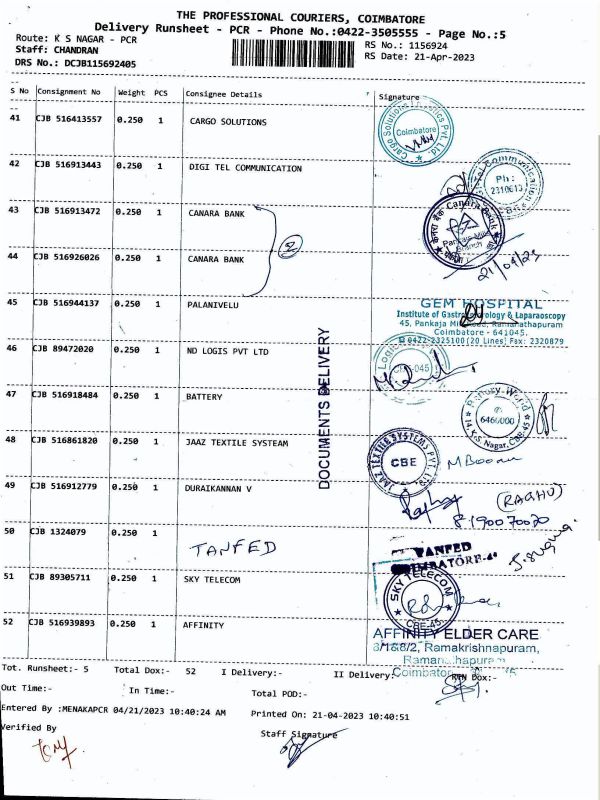 THE PROFESSIONAL COURIERS, COIMBATORE
Delivery Runsheet - PCR - Phone No.:0422-3505555 - Page No.:5
Route: K S NAGAR - PCR
RS No.: 1156924
Staff: CHANDRAN
RS Date: 21-Apr-2023
DRS No.: DCJB115692405
S No Consignment No Weight PCS Consignee Details Signature
41 CJB 516413557 0.250 1 CARGO SOLUTIONS
Coimbatore
42 CJB 516913443 0.250 1 DIGI TEL COMMUNICATION
Ph :
43 CJB 516913472 0.250 1 CANARA BANK
Canara Bank
52
44 CJB 516926026 0.250 1 CANARA BANK
21/04/23
45 CJB 516944137 0.250 1 PALANIVELU
GEM HOSPITAL
Institute of Gastroenterology & Laparaoscopy
45, Pankaja Mill Road, Ramanathapuram
Coimbatore - 641045.
0422-2325100(20 Lines) Fax: 2320879
DOCUMENTS DELIVERY
46 CJB 89472020 0.250 1 ND LOGIS PVT LTD
47 CJB 516918484 0.250 1 BATTERY
Battery World
6460000
48 CJB 516861820 0.250 1 JAAZ TEXTILE SYSTEAM
JAAZ TEXTILE SYSTEMS PVT. LTD.
CBE
49 CJB 516912779 0.250 1 DURAIKANNAN V
(RAGHU)
8190070020
50 CJB 1324079 0.250 1
TANFED
TANFED
51 CJB 89305711 0.250 1 SKY TELECOM
SKY TELECOM
CBE-45
52 CJB 516939893 0.250 1 AFFINITY
AFFINITY ELDER CARE
3/1&8/2, Ramakrishnapuram,
Tot. Runsheet:- 5 Total Dox:- 52 I Delivery:- II Delivery: RTN Dox:-
Out Time:- In Time:- Total POD:-
Entered By :MENAKAPCR 04/21/2023 10:40:24 AM Printed On: 21-04-2023 10:40:51
Verified By
Staff Signature